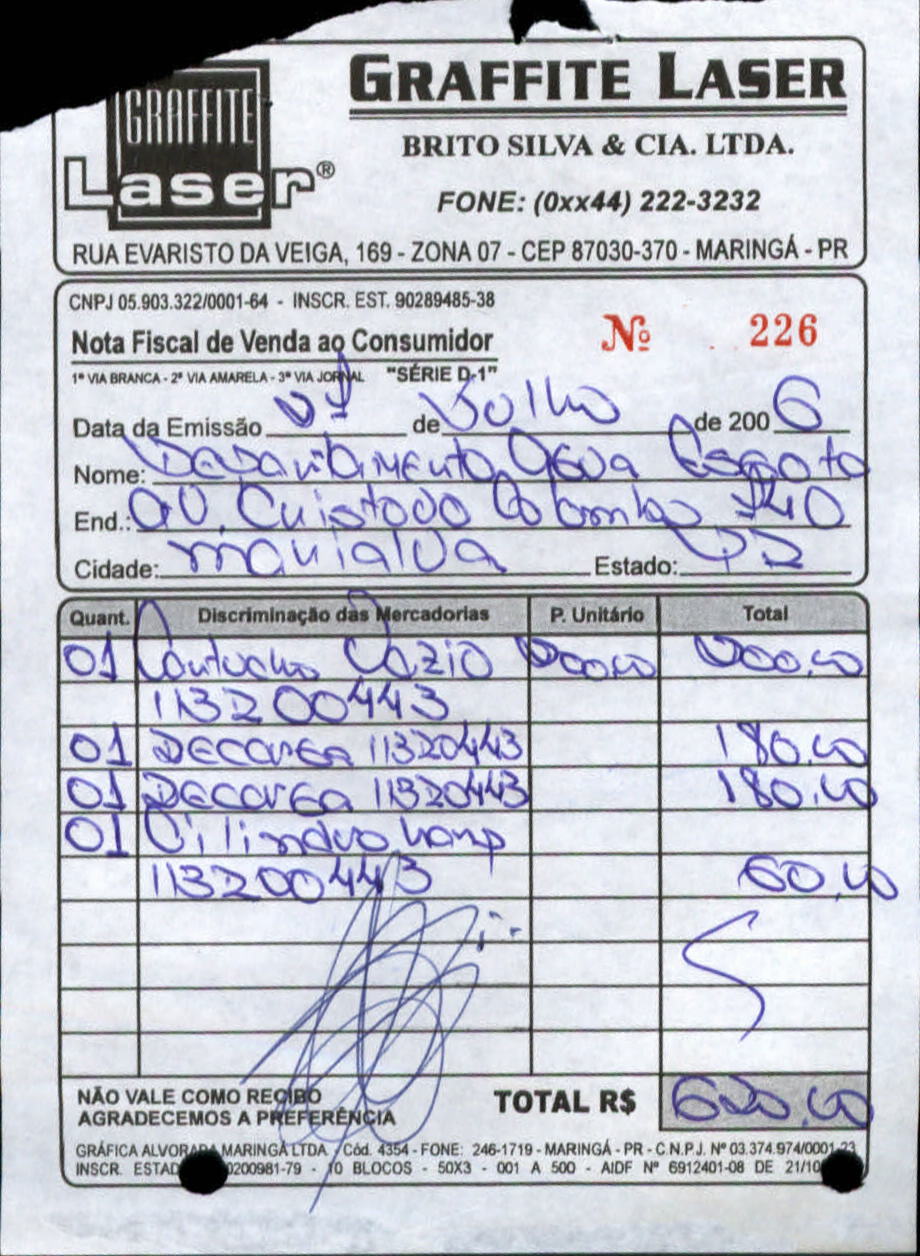 GRAFFITE
Laser®
GRAFFITE LASER
BRITO SILVA & CIA. LTDA.
FONE: (0xx44) 222-3232
RUA EVARISTO DA VEIGA, 169 - ZONA 07 - CEP 87030-370 - MARINGÁ - PR
CNPJ 05.903.322/0001-64 - INSCR. EST. 90289485-38
Nota Fiscal de Venda ao Consumidor
Nº 226
1ª VIA BRANCA - 2ª VIA AMARELA - 3ª VIA JORNAL "SÉRIE D-1"
Data da Emissão de Julho de 2006
Nome: Departamento Agua Esgoto
End.: av. Cristovo Colombo 740
Cidade: marialva Estado: PR
Quant. Discriminação das Mercadorias P. Unitário Total
01 Cartucho Vazio
113200443
01 DECOREA 11320443 180,00
01 DECOREA 11320443 180,00
01 Cilindro
113200443 60,00
NÃO VALE COMO RECIBO
AGRADECEMOS A PREFERÊNCIA
TOTAL R$ 620,00
GRÁFICA ALVORADA MARINGÁ LTDA - Cód. 4354 - FONE: 246-1719 - MARINGÁ - PR - C.N.P.J. Nº 03.374.974/0001-23
INSCR. ESTAD 0200981-79 - 10 BLOCOS - 50X3 - 001 A 500 - AIDF Nº 6912401-08 DE 21/10